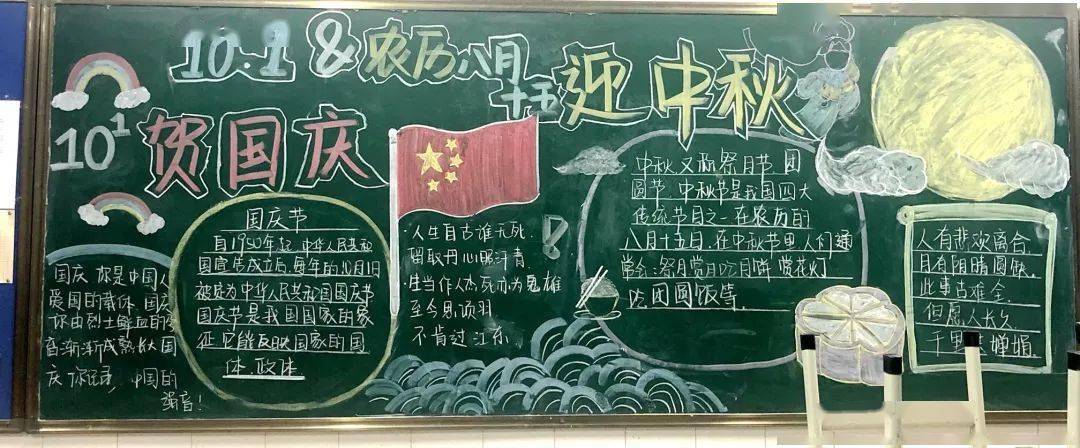 10.1 & 农历八月
十五
迎中秋
10¹
贺国庆
国庆节
自1950年起,中华人民共和
国宣告成立后,每年的10月1日
被定为中华人民共和国国庆节
国庆节是我国国家的象
征,它能反映国家的国
体、政体
国庆 你是中国人
爱国的载体 国庆
你由烈士鲜血
渐渐成熟长大 国
庆 你记录 中国的
强音!
·人生自古谁无死,
留取丹心照汗青.
·生当作人杰,死亦为鬼雄
至今思项羽
不肯过江东
中秋又称祭月节 团
圆节 中秋节是我国四大
传统节日之一 在农历的
八月十五日.在中秋节里人们通
常会:祭月赏月吃月饼 赏花灯
吃团圆饭等.
人有悲欢离合
月有阴晴圆缺.
此事古难全.
但愿人长久
千里 婵娟.